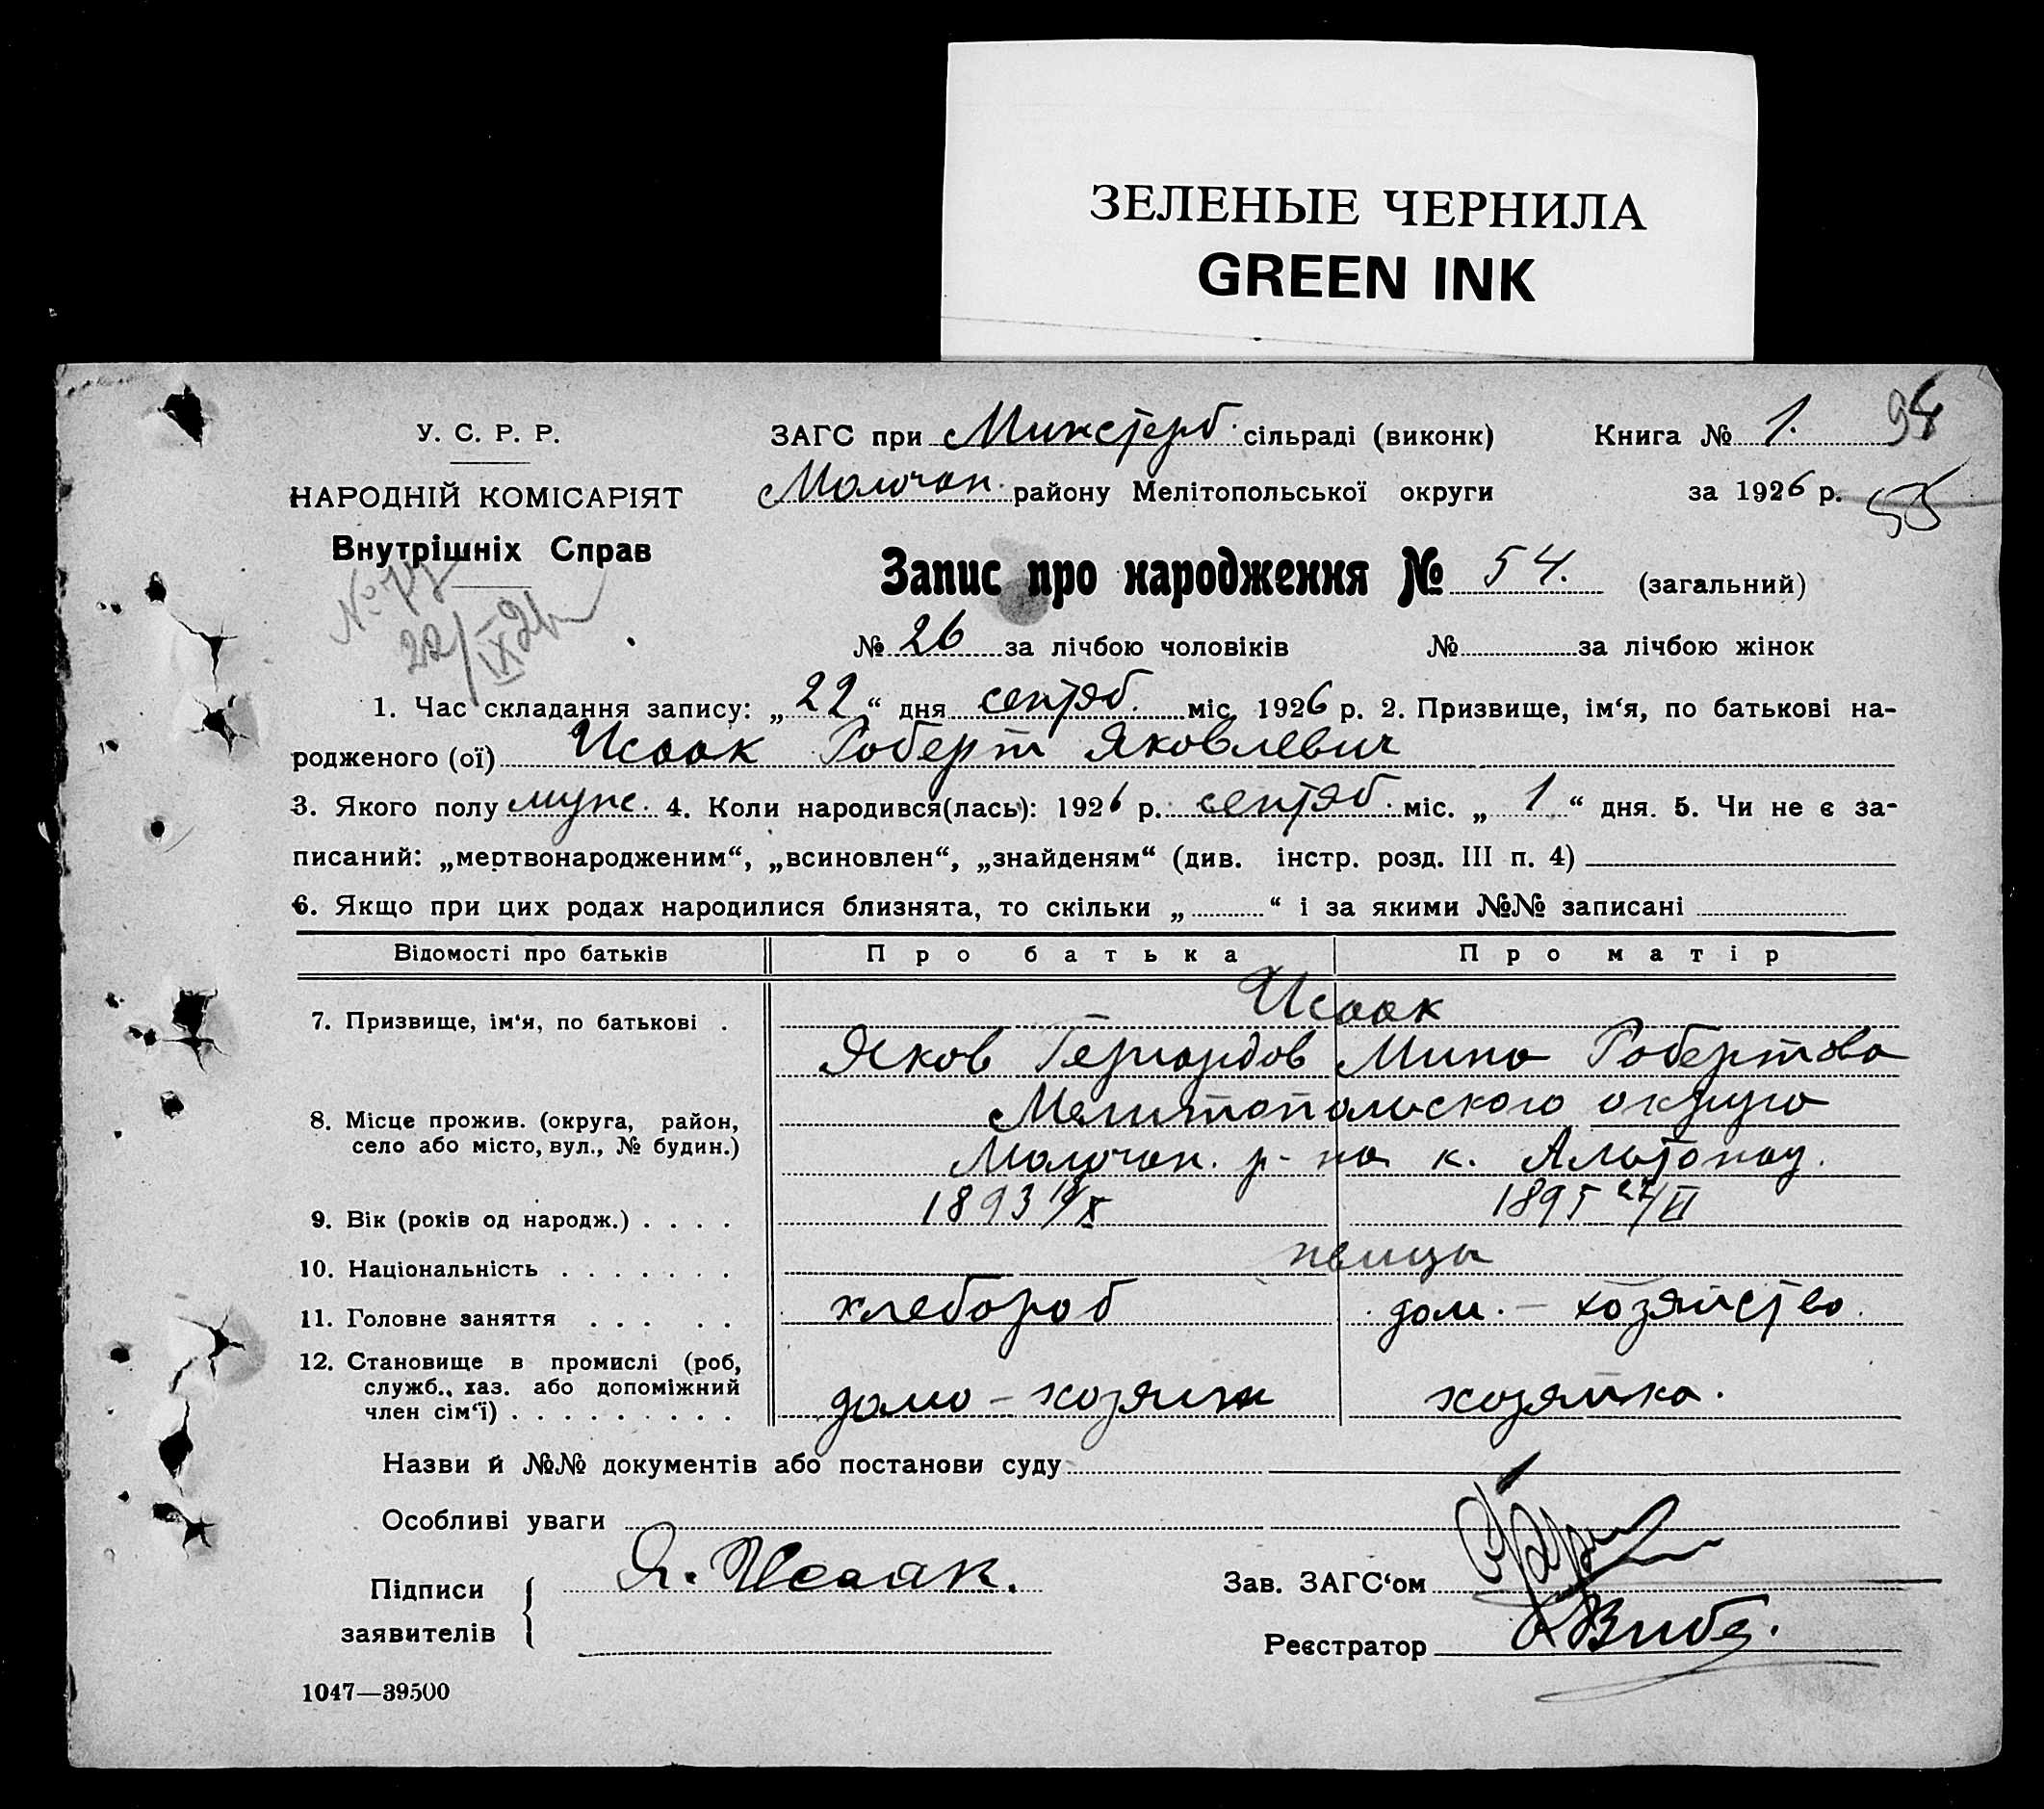 ЗЕЛЕНЫЕ ЧЕРНИЛА
GREEN INK
У. С. Р. Р.
НАРОДНІЙ КОМІСАРІЯТ
Внутрішніх Справ
22/IX-26
ЗАГС при Минстерб. сільраді (виконк) Книга № 1. 94
Молочан. району Мелітопольської округи за 1926 р. 55
Запис про народження № 54. (загальний)
№ 26 за лічбою чоловіків № за лічбою жінок
1. Час складання запису: „22“ дня сентяб. міс. 1926 р. 2. Призвище, ім‘я, по батькові на-
родженого (ої) Исаак Роберт Яковлевич
3. Якого полу муж. 4. Коли народився(лась): 1926 р. сентяб. міс. „1“ дня. 5. Чи не є за-
писаний: „мертвонародженим“, „всиновлен“, „знайденям“ (див. інстр. розд. III п. 4)
6. Якщо при цих родах народилися близнята, то скільки „ “ і за якими №№ записані
Відомості про батьків Про батька Про матір
7. Призвище, ім‘я, по батькові . Исаак
Яков Гергардов Мина Робертова
8. Місце прожив. (округа, район, село або місто, вул., № будин.) Мелитопольского округа
Молочан. р-на к. Альтонау.
9. Вік (років од народж.) . . . . 1893 18/X 1895 27/VI
10. Національність . . . . . . . немцы
11. Головне заняття . . . . . хлебороб дом. - хозяйство.
12. Становище в промислі (роб, служб., хаз. або допоміжний член сім‘ї) . . . . . . . . . домо - хозяин хозяйка.
Назви й №№ документів або постанови суду
Особливі уваги
Підписи заявителів Я. Исаак.
Зав. ЗАГС‘ом
Реєстратор Вибе.
1047—39500